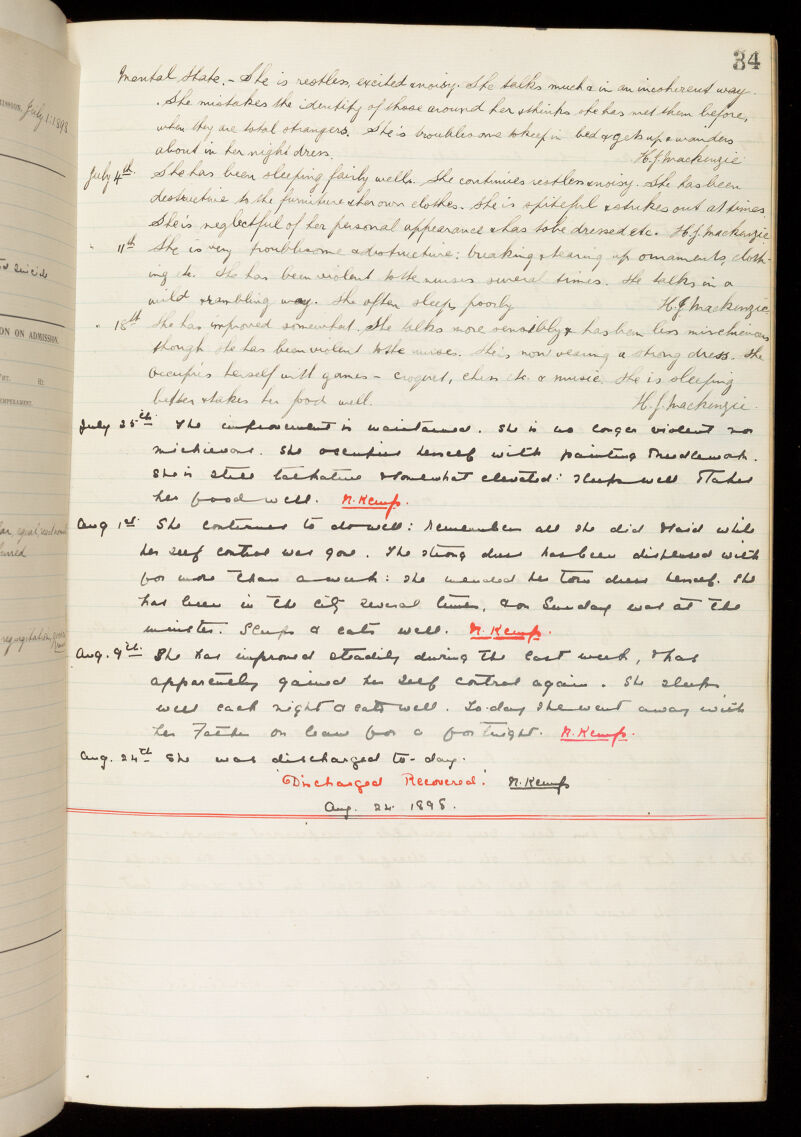 34
Mental State. - She is restless, excited & noisy. She talks much & in an incoherent way.
She mistakes the identity of those around her & thinks she has met them before,
when they are total strangers. She is troublesome to keep in bed & gets up & wanders
about in her night dress. H. J. Mackenzie
July 4th. She has been sleeping fairly well. She continues restless & noisy. She has been
destructive to the furniture & her own clothes. She is spiteful & strikes out at times.
She is neglectful of her personal appearance & has to be dressed etc. H. J. Mackenzie
" 11th She is very troublesome & destructive; breaking & tearing up ornaments, cloth-
ing etc. She has been violent to the nurses several times. She talks in a
wild & rambling way. She often sleeps poorly H. J. Mackenzie
" 18th She has improved somewhat. She talks more sensibly & has been less mischievous
though she has been violent to the nurses. She is now wearing a strong dress. She
occupies herself with games - croquet, chess etc. & music. She is sleeping
better & takes her food well. H. J. Mackenzie.
July 25th. The improvement is maintained. She is no longer violent nor
mischievous. She occupies herself with painting & needlework.
She is still talkative & somewhat elevated: sleeps well & takes
her food well. N. Kemp.
Aug 1st. She continues to do well: remembers all she did & said while
her self control was gone. The strong dress has been dispensed with
for more than a week: she mended her torn dress herself. She
has been in the city several times, & on Sunday was at the
minster. Sleeps & eats well. N. Kemp.
Aug. 9th. She has improved steadily during the last week, & has
apparently gained her self control again. She sleeps
well each night & eats well. To-day she went away with
her Father on leave for a fortnight. N. Kemp.
Aug. 24th She was discharged to-day.
"Discharged Recovered." N. Kemp
Aug. 24. 1898.
July 1: 1898
suicide
ON ON ADMISSION.